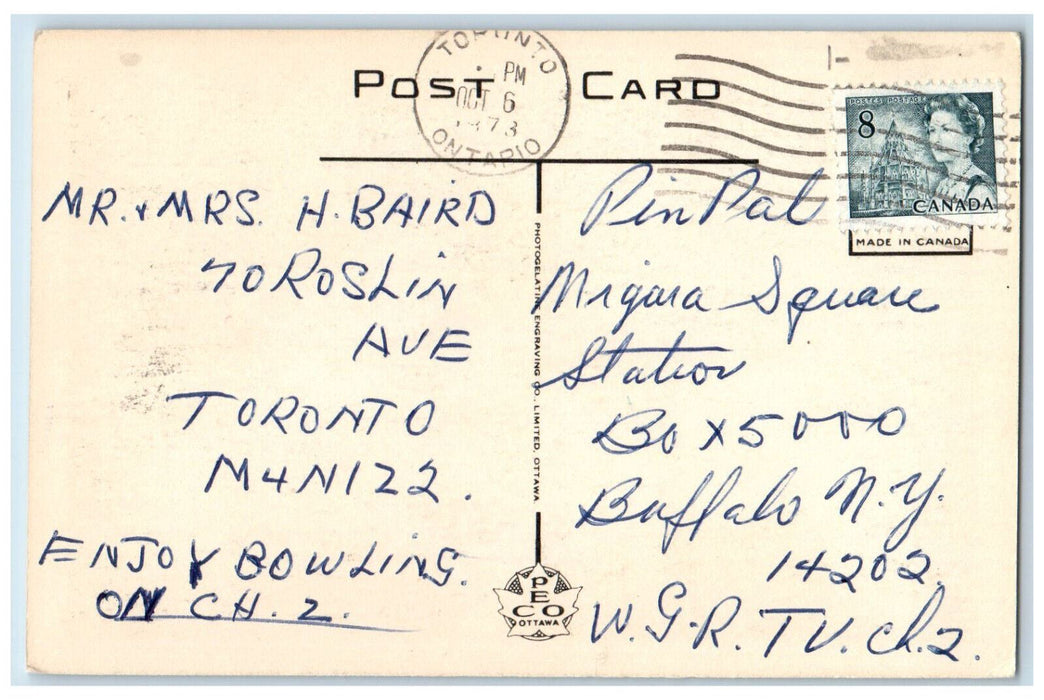 POST CARD
TORONTO
PM
OCT 6
1973
ONTARIO
POSTES POSTAGE
8
CANADA
MADE IN CANADA
MR. & MRS. H. BAIRD
70 ROSLIN
AVE
TORONTO
M4N1Z2.
ENJOY BOWLING.
ON CH. 2.
PHOTOGELATINE ENGRAVING CO. LIMITED, OTTAWA
PECO
OTTAWA
Pin Pal
Niagara Square
Station
Box 5000
Buffalo N.Y.
14202.
W.G.R. TV. Ch.2.